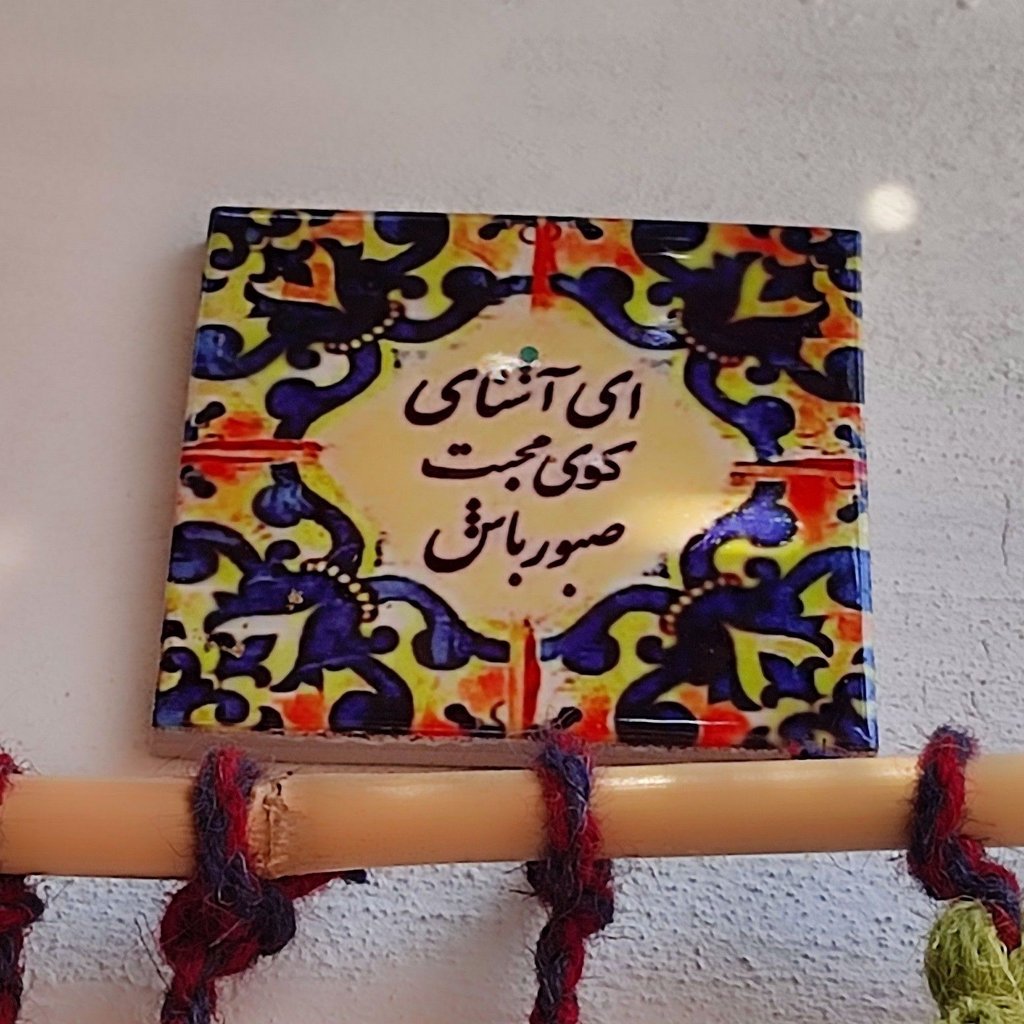 ای آشنای
کوی محبت
صبور باش